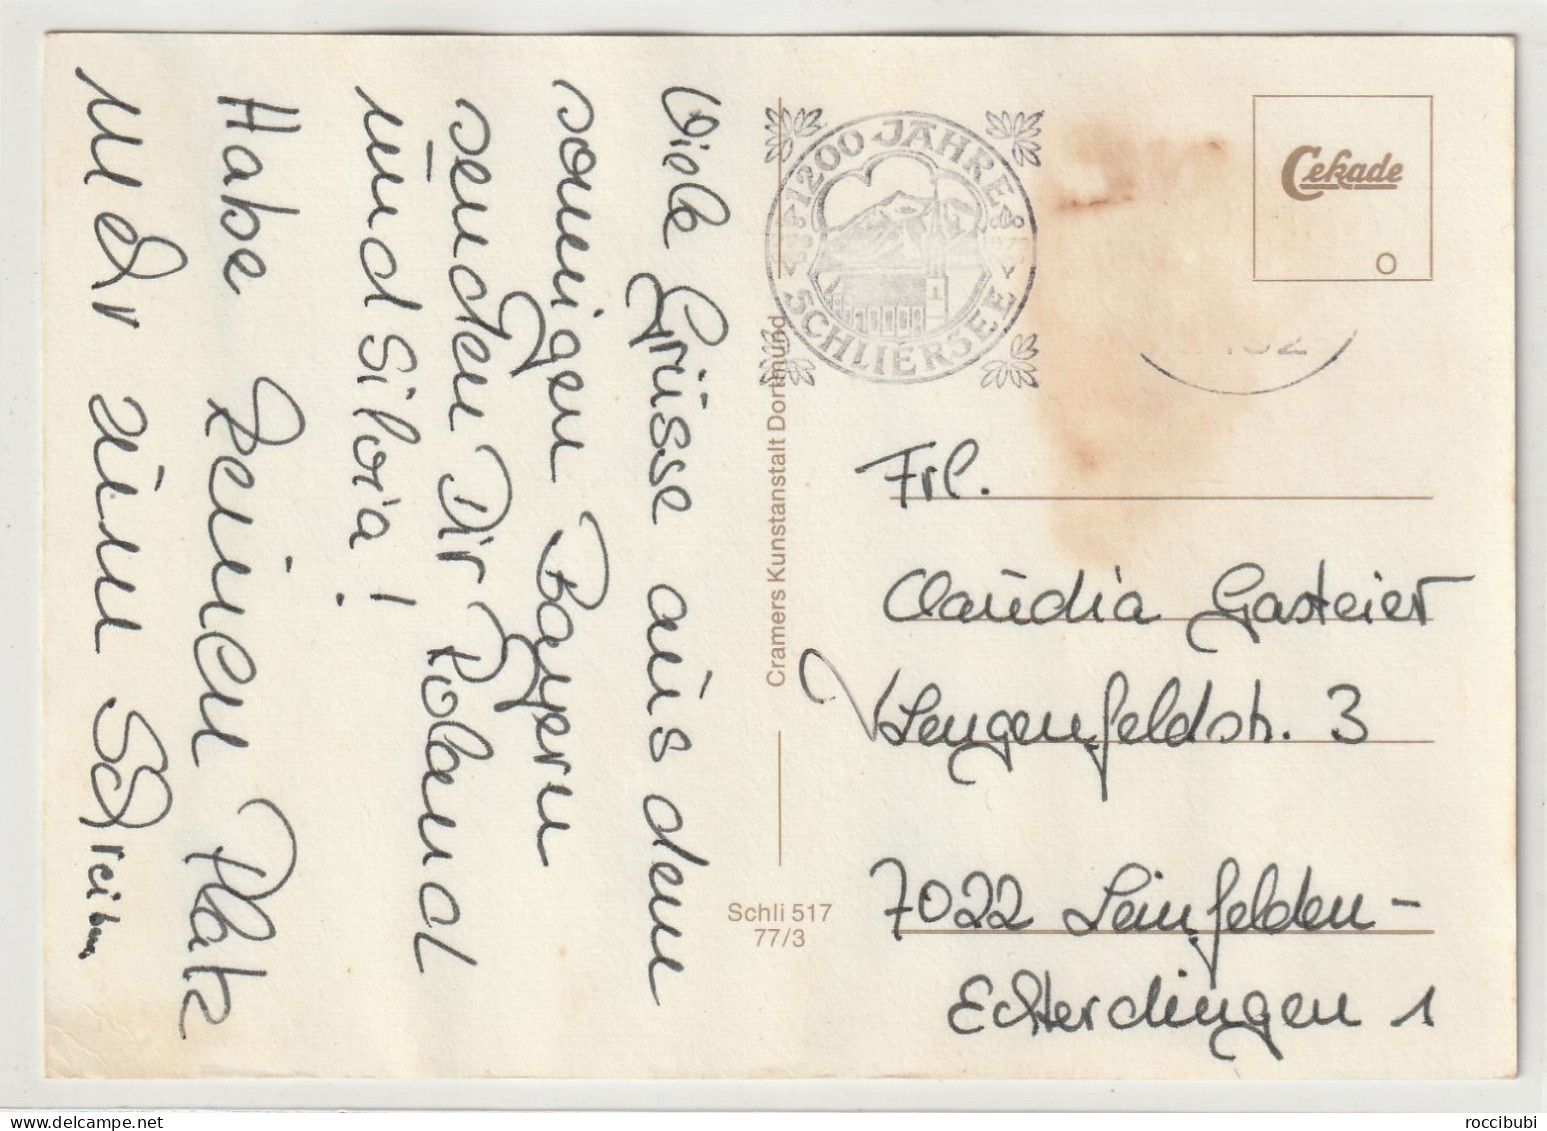 Viele Grüsse aus dem
sonnigen Bayern
senden Dir Roland
und Silvia!
Habe keinen Platz
mehr zum Schreiben
1200 JAHRE
SCHLIERSEE
Cekade
O
Cramers Kunstanstalt Dortmund
Schli 517
77/3
Frl.
Claudia Gasteier
Lengenfeldstr. 3
7022 Leinfelden-
Echterdingen 1
www.delcampe.net
roccibubi